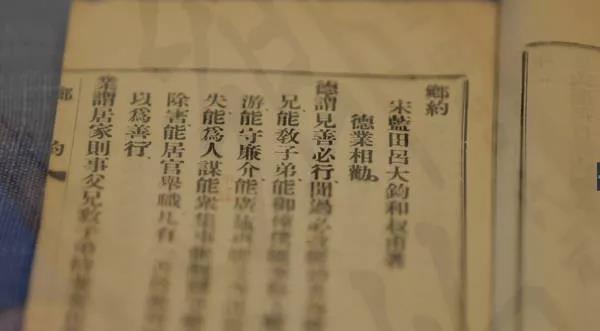 鄉約
宋藍田呂大鈞和叔甫著
德業相勸
德謂見善必行聞過必改能治其身
兄能教子弟能御僮僕能事長上
游能守廉介能廣施惠
失能爲人謀能衆集事
除害能居官舉職凡有
以爲善行
業謂居家則事父兄教子弟待妻妾
鄉約